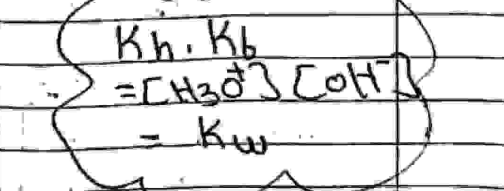 Kh. Kb
= [H3O+] [OH-]
= Kw